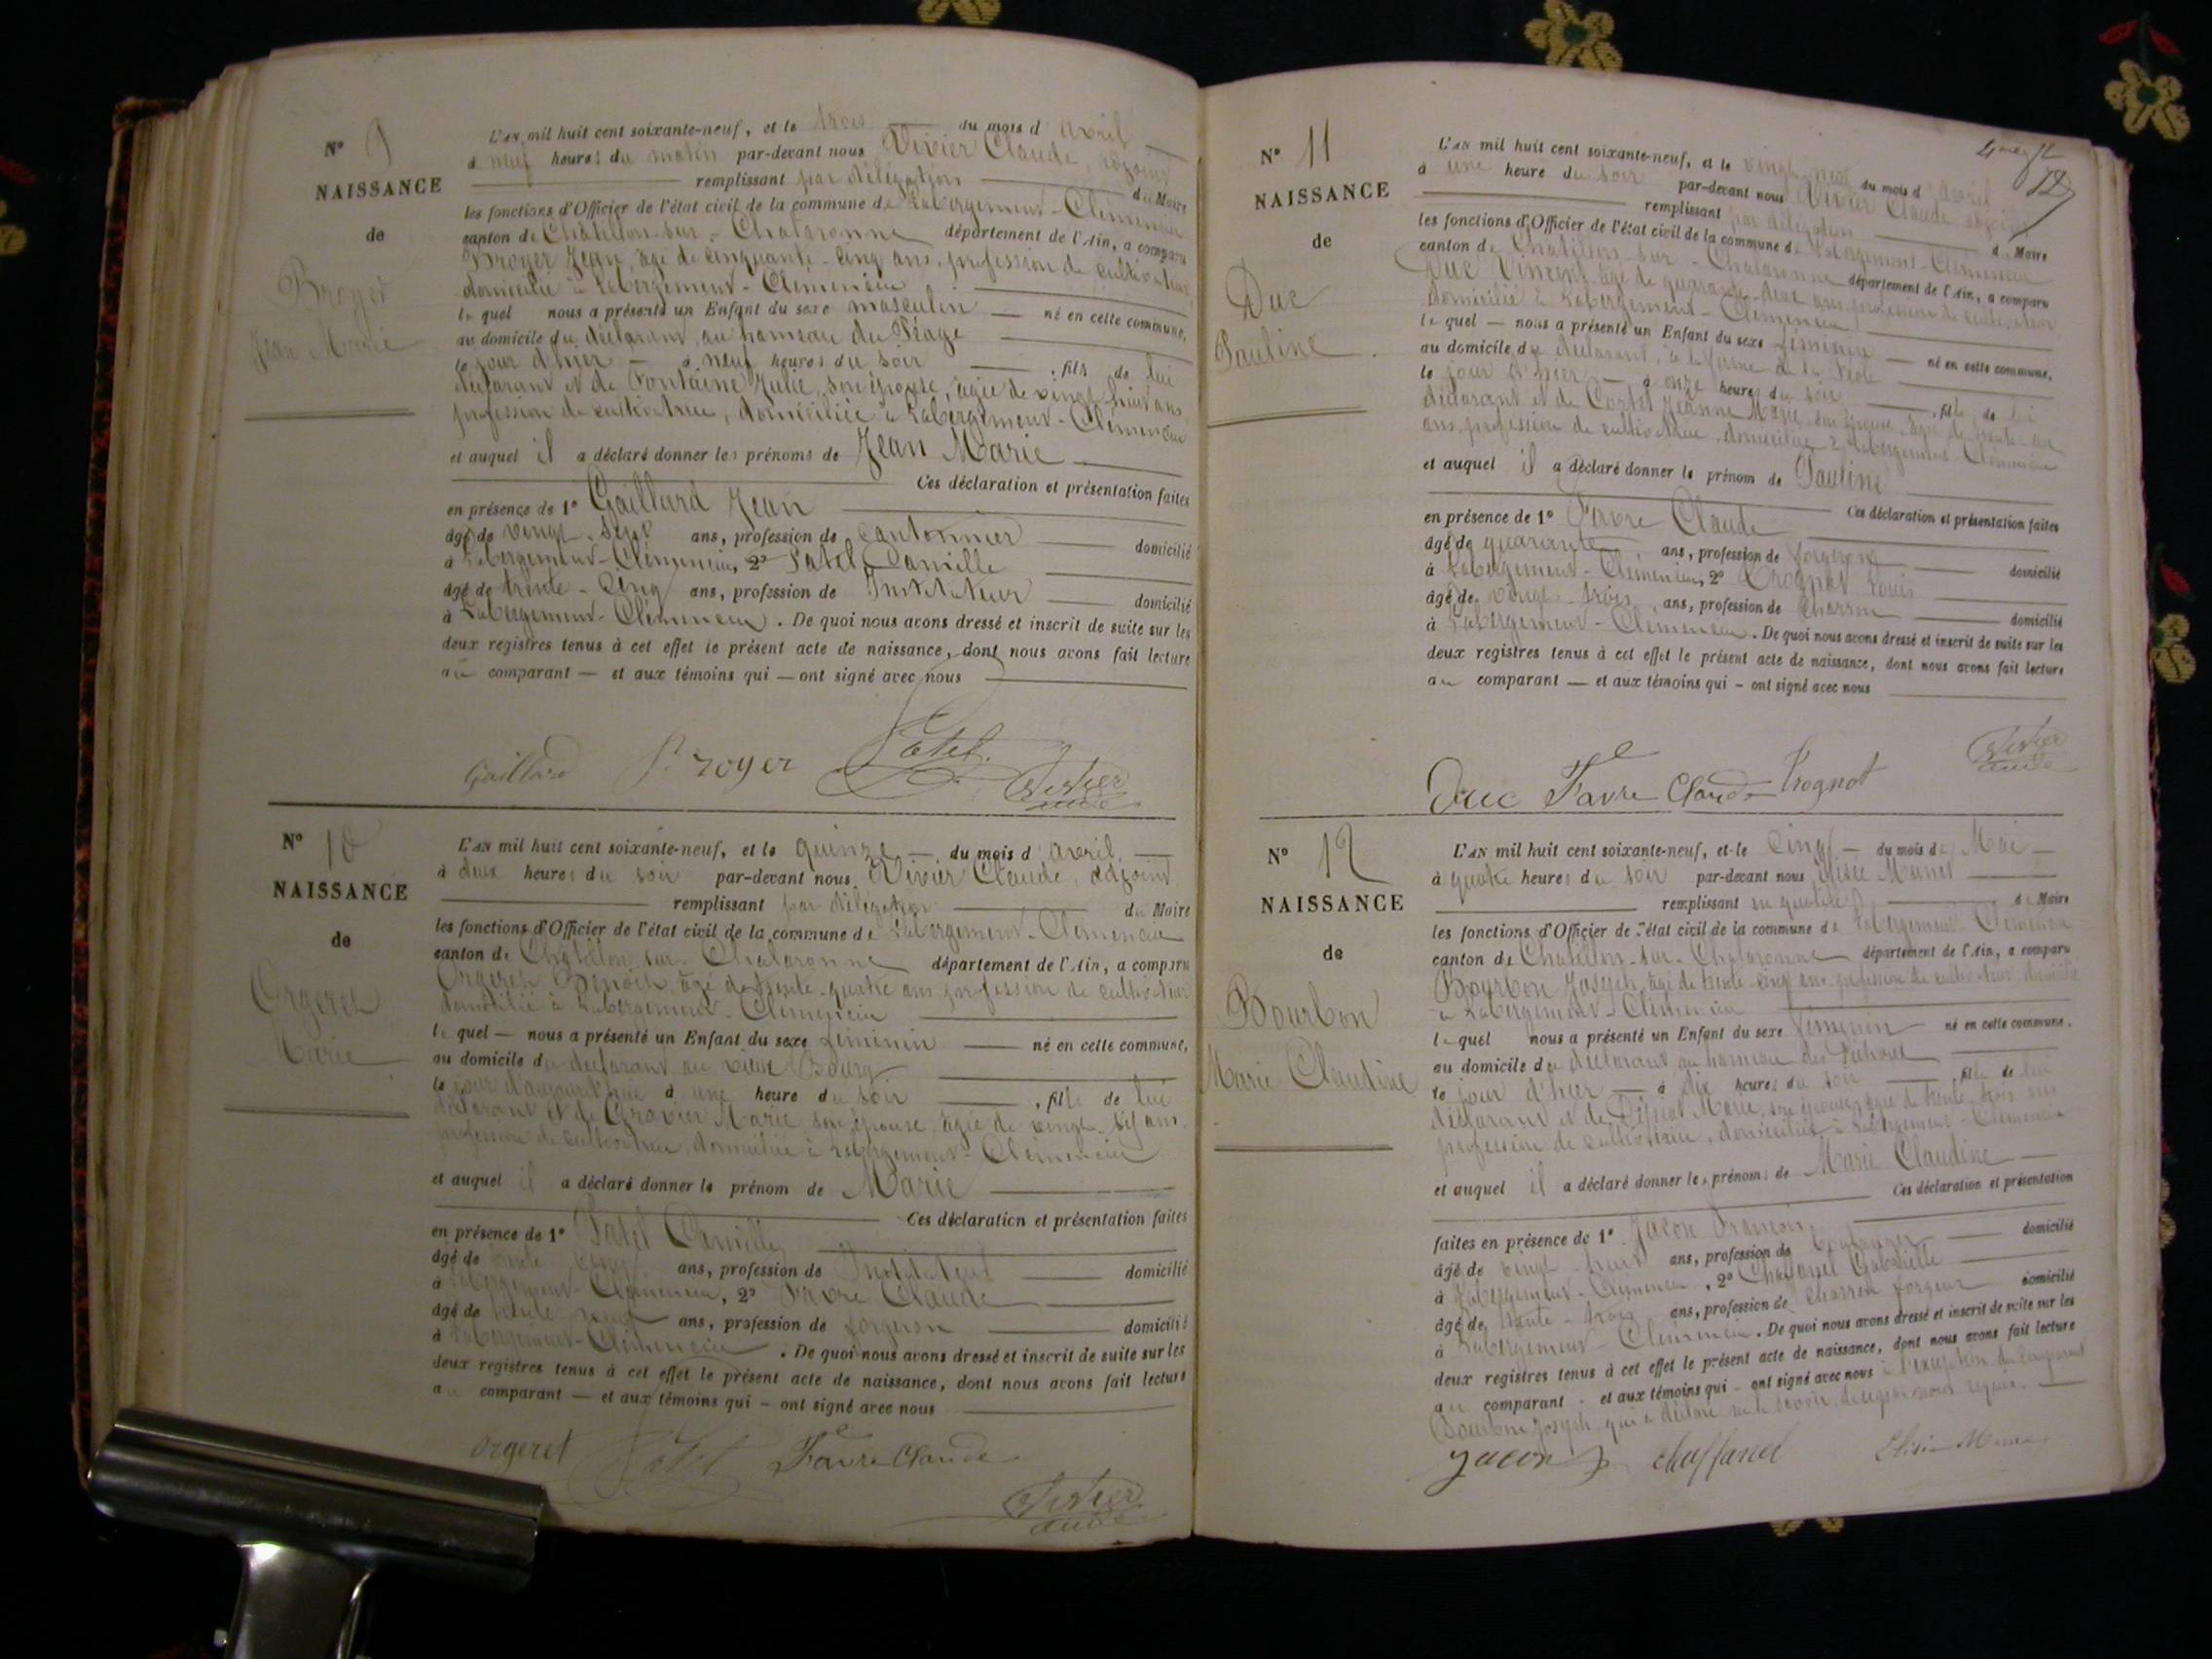 N° 9
NAISSANCE
de
Broyer
Jean Marie
L'AN mil huit cent soixante-neuf, et le trois — du mois d'avril —
à neuf heures du matin par-devant nous Vivier Claude, adjoint
remplissant par délégation du Maire
les fonctions d'Officier de l'état civil de la commune de Labergement-Clémenciat
canton de Châtillon-sur-Chalaronne département de l'Ain, a comparu
Broyer Jean, âgé de cinquante-cinq ans, profession de cultivateur,
domicilié à Labergement-Clémenciat
lequel nous a présenté un Enfant du sexe masculin — né en cette commune,
au domicile du déclarant, au hameau du Péage
le jour d'hier — à neuf heures du soir — , fils de lui
déclarant et de Fontaine Julie, son épouse, âgée de vingt huit ans
profession de cultivatrice, domiciliée à Labergement-Clémenciat
et auquel il a déclaré donner les prénoms de Jean Marie
Ces déclaration et présentation faites
en présence de 1° Gaillard Jean
âgé de vingt-sept ans, profession de Cantonnier — domicilié
à Labergement-Clémenciat, 2° Patel Camille
âgé de trente-cinq ans, profession de Instituteur — domicilié
à Labergement-Clémenciat. De quoi nous avons dressé et inscrit de suite sur les
deux registres tenus à cet effet le présent acte de naissance, dont nous avons fait lecture
au comparant — et aux témoins qui — ont signé avec nous
Gaillard Broyer Patel Vivier
Claude
N° 10
NAISSANCE
de
Orgeret
Marie
L'AN mil huit cent soixante-neuf, et le quinze — du mois d'avril —
à deux heures du soir par-devant nous Vivier Claude, adjoint
remplissant par délégation du Maire
les fonctions d'Officier de l'état civil de la commune de Labergement-Clémenciat
canton de Châtillon-sur-Chalaronne département de l'Ain, a comparu
Orgeret Benoit, âgé de trente-quatre ans, profession de cultivateur
domicilié à Labergement-Clémenciat
lequel — nous a présenté un Enfant du sexe féminin — né en cette commune,
au domicile du déclarant, au vieux Bourg
le jour d'aujourd'hui à une heure du soir — , fille de lui
déclarant et de Gravier Marie, son épouse, âgée de vingt-six ans,
profession de cultivatrice, domiciliée à Labergement-Clémenciat
et auquel il a déclaré donner le prénom de Marie
Ces déclaration et présentation faites
en présence de 1° Patel Camille
âgé de trente cinq ans, profession de Instituteur — domicilié
à Labergement-Clémenciat, 2° Favre Claude
âgé de trente neuf ans, profession de forgeron — domicilié
à Labergement-Clémenciat. De quoi nous avons dressé et inscrit de suite sur les
deux registres tenus à cet effet le présent acte de naissance, dont nous avons fait lecture
au comparant — et aux témoins qui — ont signé avec nous
Orgeret Patel Favre Claude
Vivier
Claude
12
N° 11
NAISSANCE
de
Duc
Pauline
L'AN mil huit cent soixante-neuf, et le vingt neuf du mois d'avril
à une heure du soir par-devant nous Vivier Claude adjoint
remplissant par délégation du Maire
les fonctions d'Officier de l'état civil de la commune de Labergement-Clémenciat
canton de Chatillon-sur-Chalaronne département de l'Ain, a comparu
Duc Vincent, âgé de quarante-deux ans, profession de cultivateur
domicilié à Labergement-Clémenciat
lequel — nous a présenté un Enfant du sexe féminin — né en cette commune,
au domicile du déclarant, à la ferme de la
le jour d'hier — à onze heures du soir — , fille de lui
déclarant et de Cortet Jeanne Marie, son épouse, âgée de trente-
ans, profession de cultivatrice, domiciliée à Labergement-Clémenciat
et auquel il a déclaré donner le prénom de Pauline
Ces déclaration et présentation faites
en présence de 1° Favre Claude
âgé de quarante ans, profession de forgeron — domicilié
à Labergement-Clémenciat, 2° Trognot Louis
âgé de vingt-trois ans, profession de Charron — domicilié
à Labergement-Clémenciat. De quoi nous avons dressé et inscrit de suite sur les
deux registres tenus à cet effet le présent acte de naissance, dont nous avons fait lecture
au comparant — et aux témoins qui — ont signé avec nous
Duc Favre Claude Trognot Vivier
Claude
N° 12
NAISSANCE
de
Bourbon
Marie Claudine
L'AN mil huit cent soixante-neuf, et le Cinq — du mois de Mai —
à quatre heures du soir par-devant nous Elisée Munet
remplissant en qualité de Maire
les fonctions d'Officier de l'état civil de la commune de Labergement-Clémenciat
canton de Chatillon-sur-Chalaronne département de l'Ain, a comparu
Bourbon Joseph, âgé de trente-cinq ans, profession de cultivateur, domicilié
à Labergement-Clémenciat
lequel nous a présenté un Enfant du sexe féminin né en cette commune,
au domicile du déclarant, au hameau des
le jour d'hier — à dix heures du soir — , fille de lui
déclarant et de Marie, son épouse, âgée de trente-trois ans
profession de cultivatrice, domiciliée à Labergement-Clémenciat
et auquel il a déclaré donner les prénoms de Marie Claudine —
Ces déclaration et présentation
faites en présence de 1° Jacon François
âgé de vingt-huit ans, profession de — domicilié
à Labergement-Clémenciat, 2° Chaffanel
âgé de trente-trois ans, profession de Charron forgeur domicilié
à Labergement-Clémenciat. De quoi nous avons dressé et inscrit de suite sur les
deux registres tenus à cet effet le présent acte de naissance, dont nous avons fait lecture
au comparant et aux témoins qui — ont signé avec nous à l'exception du comparant
Bourbon Joseph qui a déclaré ne le savoir, de ce par nous requis.
Jacon f chaffanel Elisée Munet